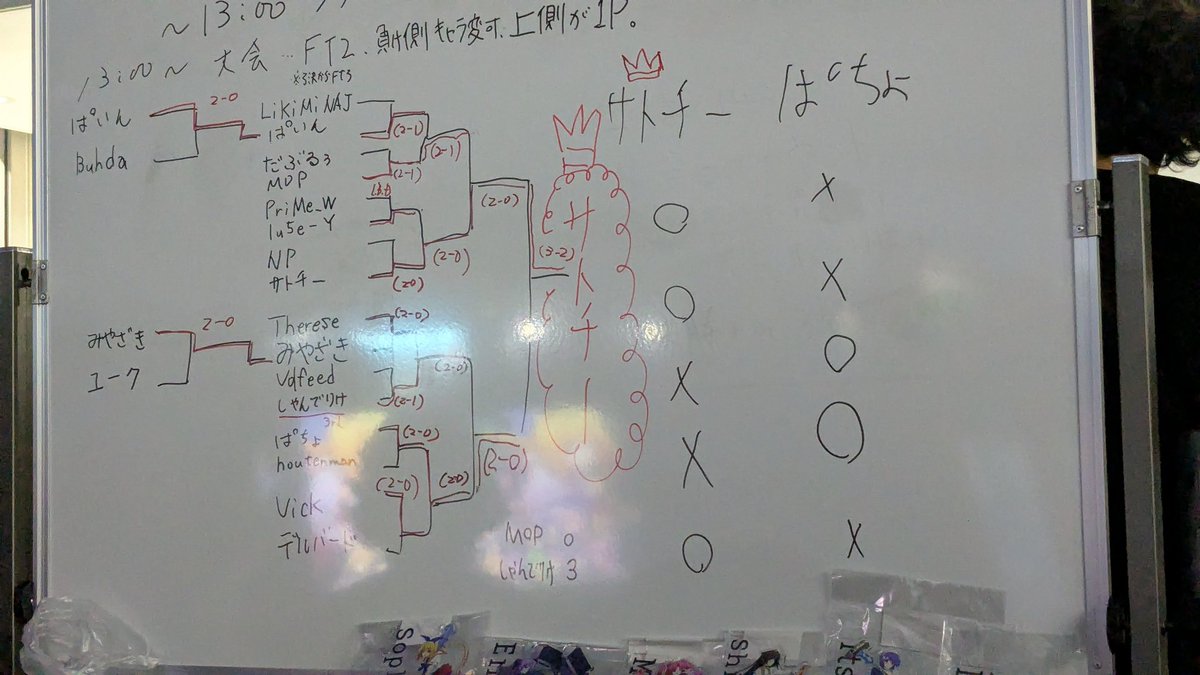 ～13:00
13:00～ 大会…FT2、負け側キャラ変可、上側が1P。
※3決からFT3
ぱいん
Buhda
2-0
LiKiMiNAJ
ぱいん
だぶるろ
MOP
PriMe_W
1u5e-Y
NP
サトチー
(2-1)
(2-1)
(2-1)
(2-0)
(2-0)
(2-0)
(3-2)
みやざき
ユーク
2-0
Therese
みやざき
Vdfeed
しゃんでりけ
3rd
ぱちょ
houtenman
Vick
デルバード
(2-0)
(2-1)
(2-0)
(2-0)
(2-0)
(2-0)
(2-0)
サトチー
MOP 0
しゃんでりけ 3
サトチー ぱちょ
○ ×
○ ×
× ○
× ○
○ ×